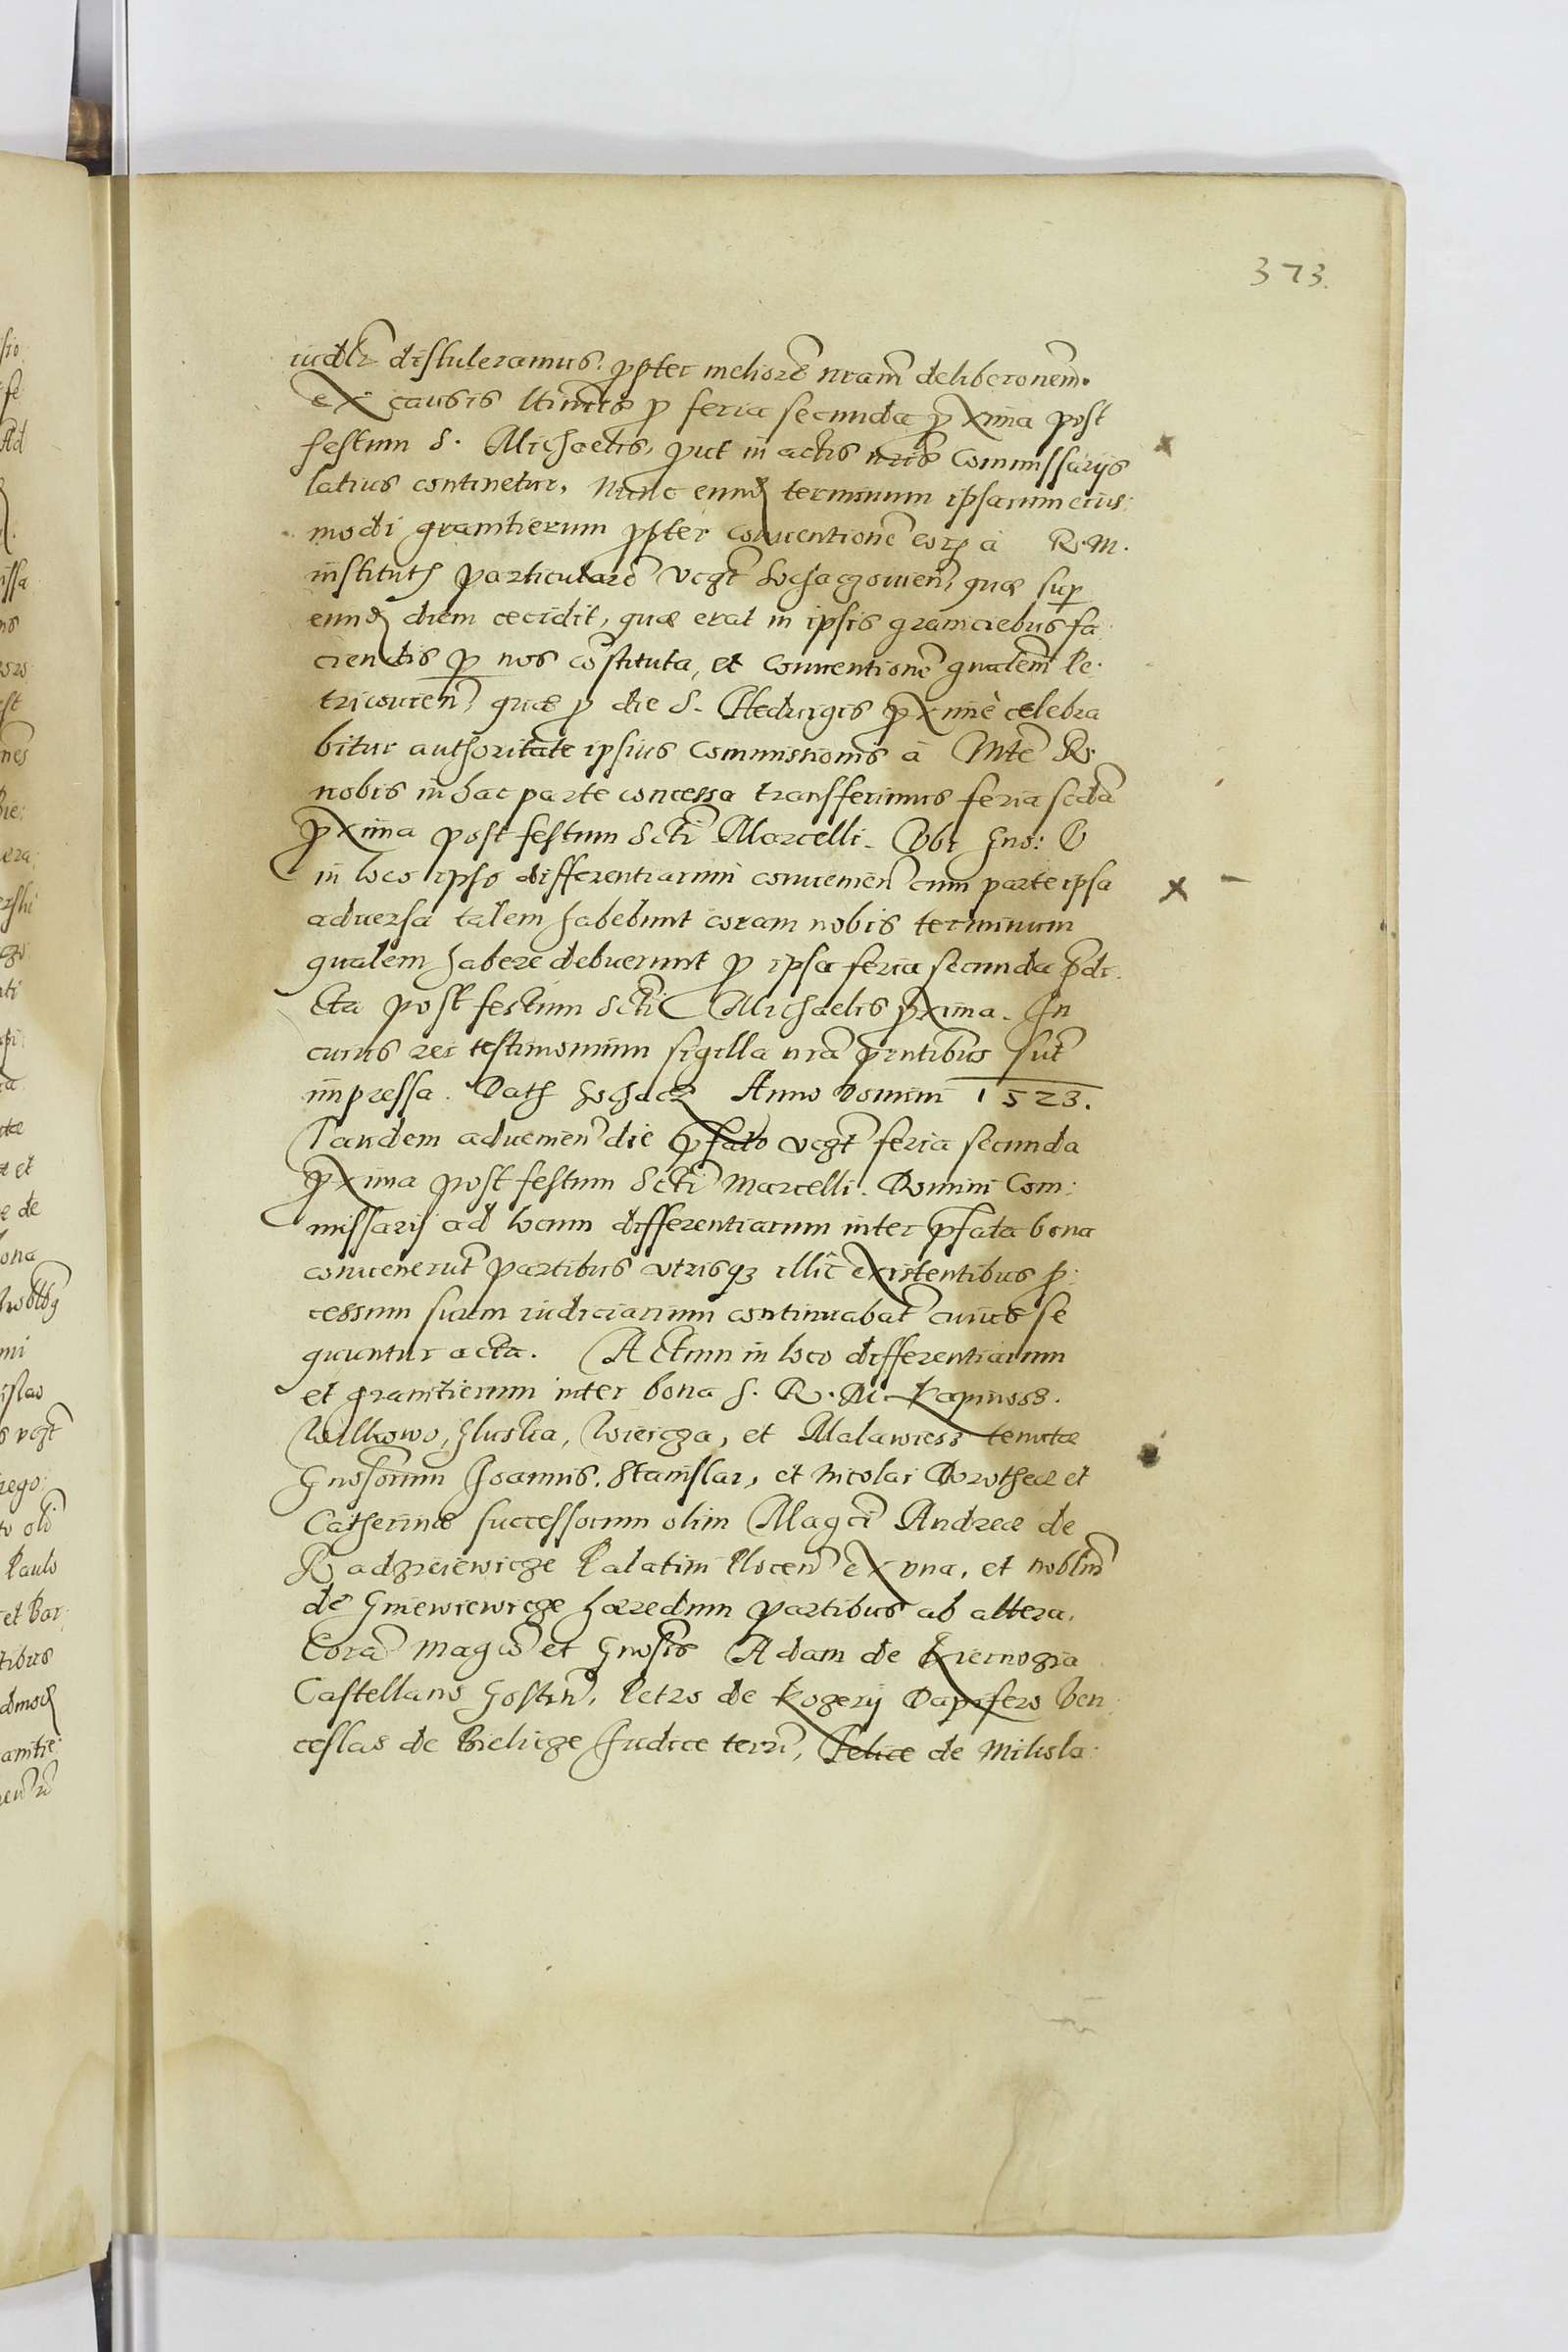 373.
iudlr distuleramus. ꝓpter meliorē nram̄ deliberonem̄.
ex causis ltimis ꝓ feria secunda ꝓxima post
festum S. Michaelis, ꝓut in actis nris̄ Commissarijs
latius continetur, Nunc eund terminum ipsarum eius:
modi granitierum ꝓpter conventionē eorꝝ à R. M.
institutꝭ particularē vcgt̄ Sochaczovien̄, quæ suꝑ
eund diem cecidit, quæ erat in ipsis graniciebus fa
ciendis ꝑ nos cōstituta, et Conventionē gnalem̄ Pe.
tricovien̄, quæ ꝓ die S. Hedvigis ꝓxime celebra
bitur authoritate ipsius Commissionis à Mte R.
nobis in hac parte concessa transferimus feria secda
ꝓxima post festum Scti Marcelli. Vbi Gno: V
in loco ipso differentiarum convenien̄ cum parte ipsa
adversa talem habebunt coram nobis terminum
qualem habere debuerunt ꝓ ipsa feria secunda p̄di.
cta post festum Scti Michaelis ꝓxima. In
cuius rei testimonium sigilla nrā p̄ntibus sūt
impressa. Datꝭ Sochacz Anno Domini 1523.
Tandem advenien̄ die p̄fato vcgt̄ feria secunda
ꝓxima post festum Scti Marcelli. Domini Com:
missarij ad locum differentiarum inter p̄fata bona
convenerūt partibus vtrisqꝫ illic existentibus ꝓ:
cessum suum iudiciarium continuabāt cuius se
quuntur acta. Actum in loco differentiarum
et granitierum inter bona S. R. M. Kapinoss.
Wilkowo, Gluskia, Wiercza, et Malawiess tenutæ
Gnosorum Joannis, Stanislai, et Nicolai Dorotheæ et
Catherinæ successorum olim Magci Andreæ de
Radzieiewicze Palatini Plocen̄ ex vna, et noblm̄
de Gniewiewicze hæredum partibus ab altera.
Corā Magcis et Gnosis Adam de Kiernozia
Castellano Gostin̄, Petro de Kozerij Dapifero Ven
ceslao de Bielicze Judice terri, Felice de Milosla: